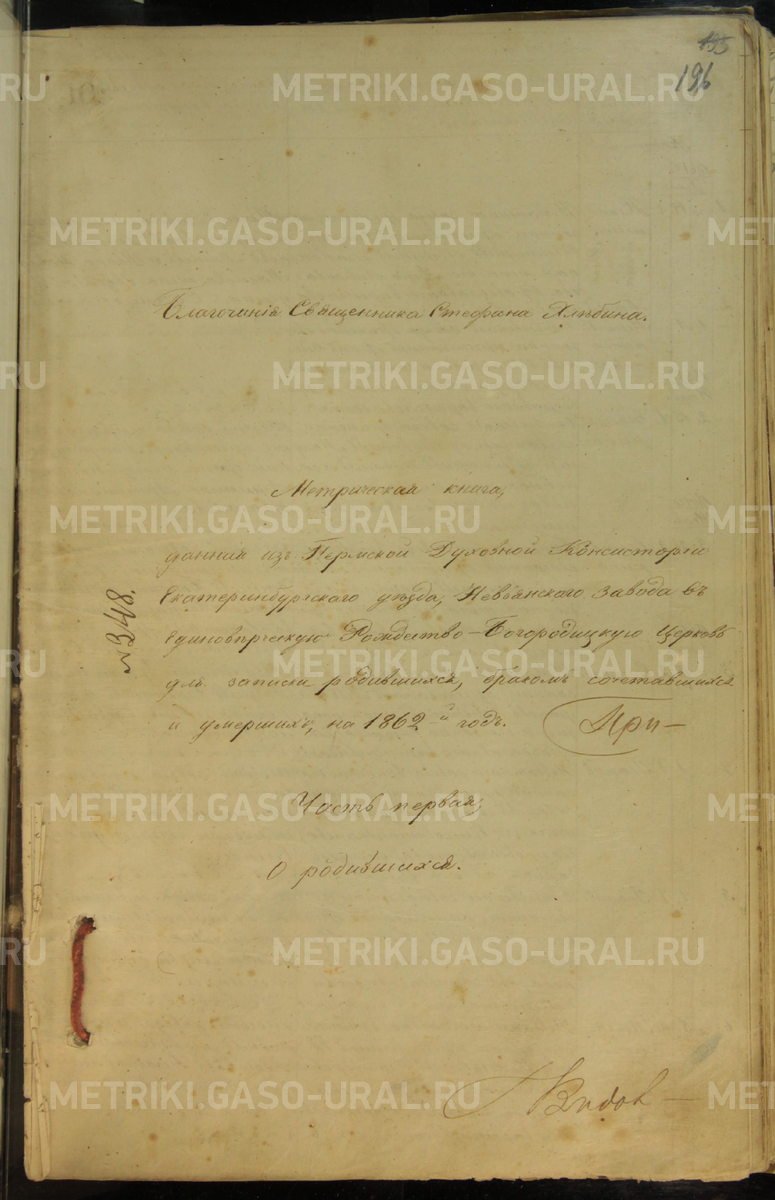 195
196
Благочинія Священника Стефана Хлѣбина.
Метрическая книга,
данная изъ Пермской Духовной Консисторіи
Екатеринбургскаго уѣзда, Невьянскаго завода въ
единовѣрческую Рождество-Богородицкую Церковь
для записки родившихся, бракомъ сочетавшихся
и умершихъ, на 1862-й годъ.
№348.
Часть первая,
О родившихся.
METRIKI.GASO-URAL.RU